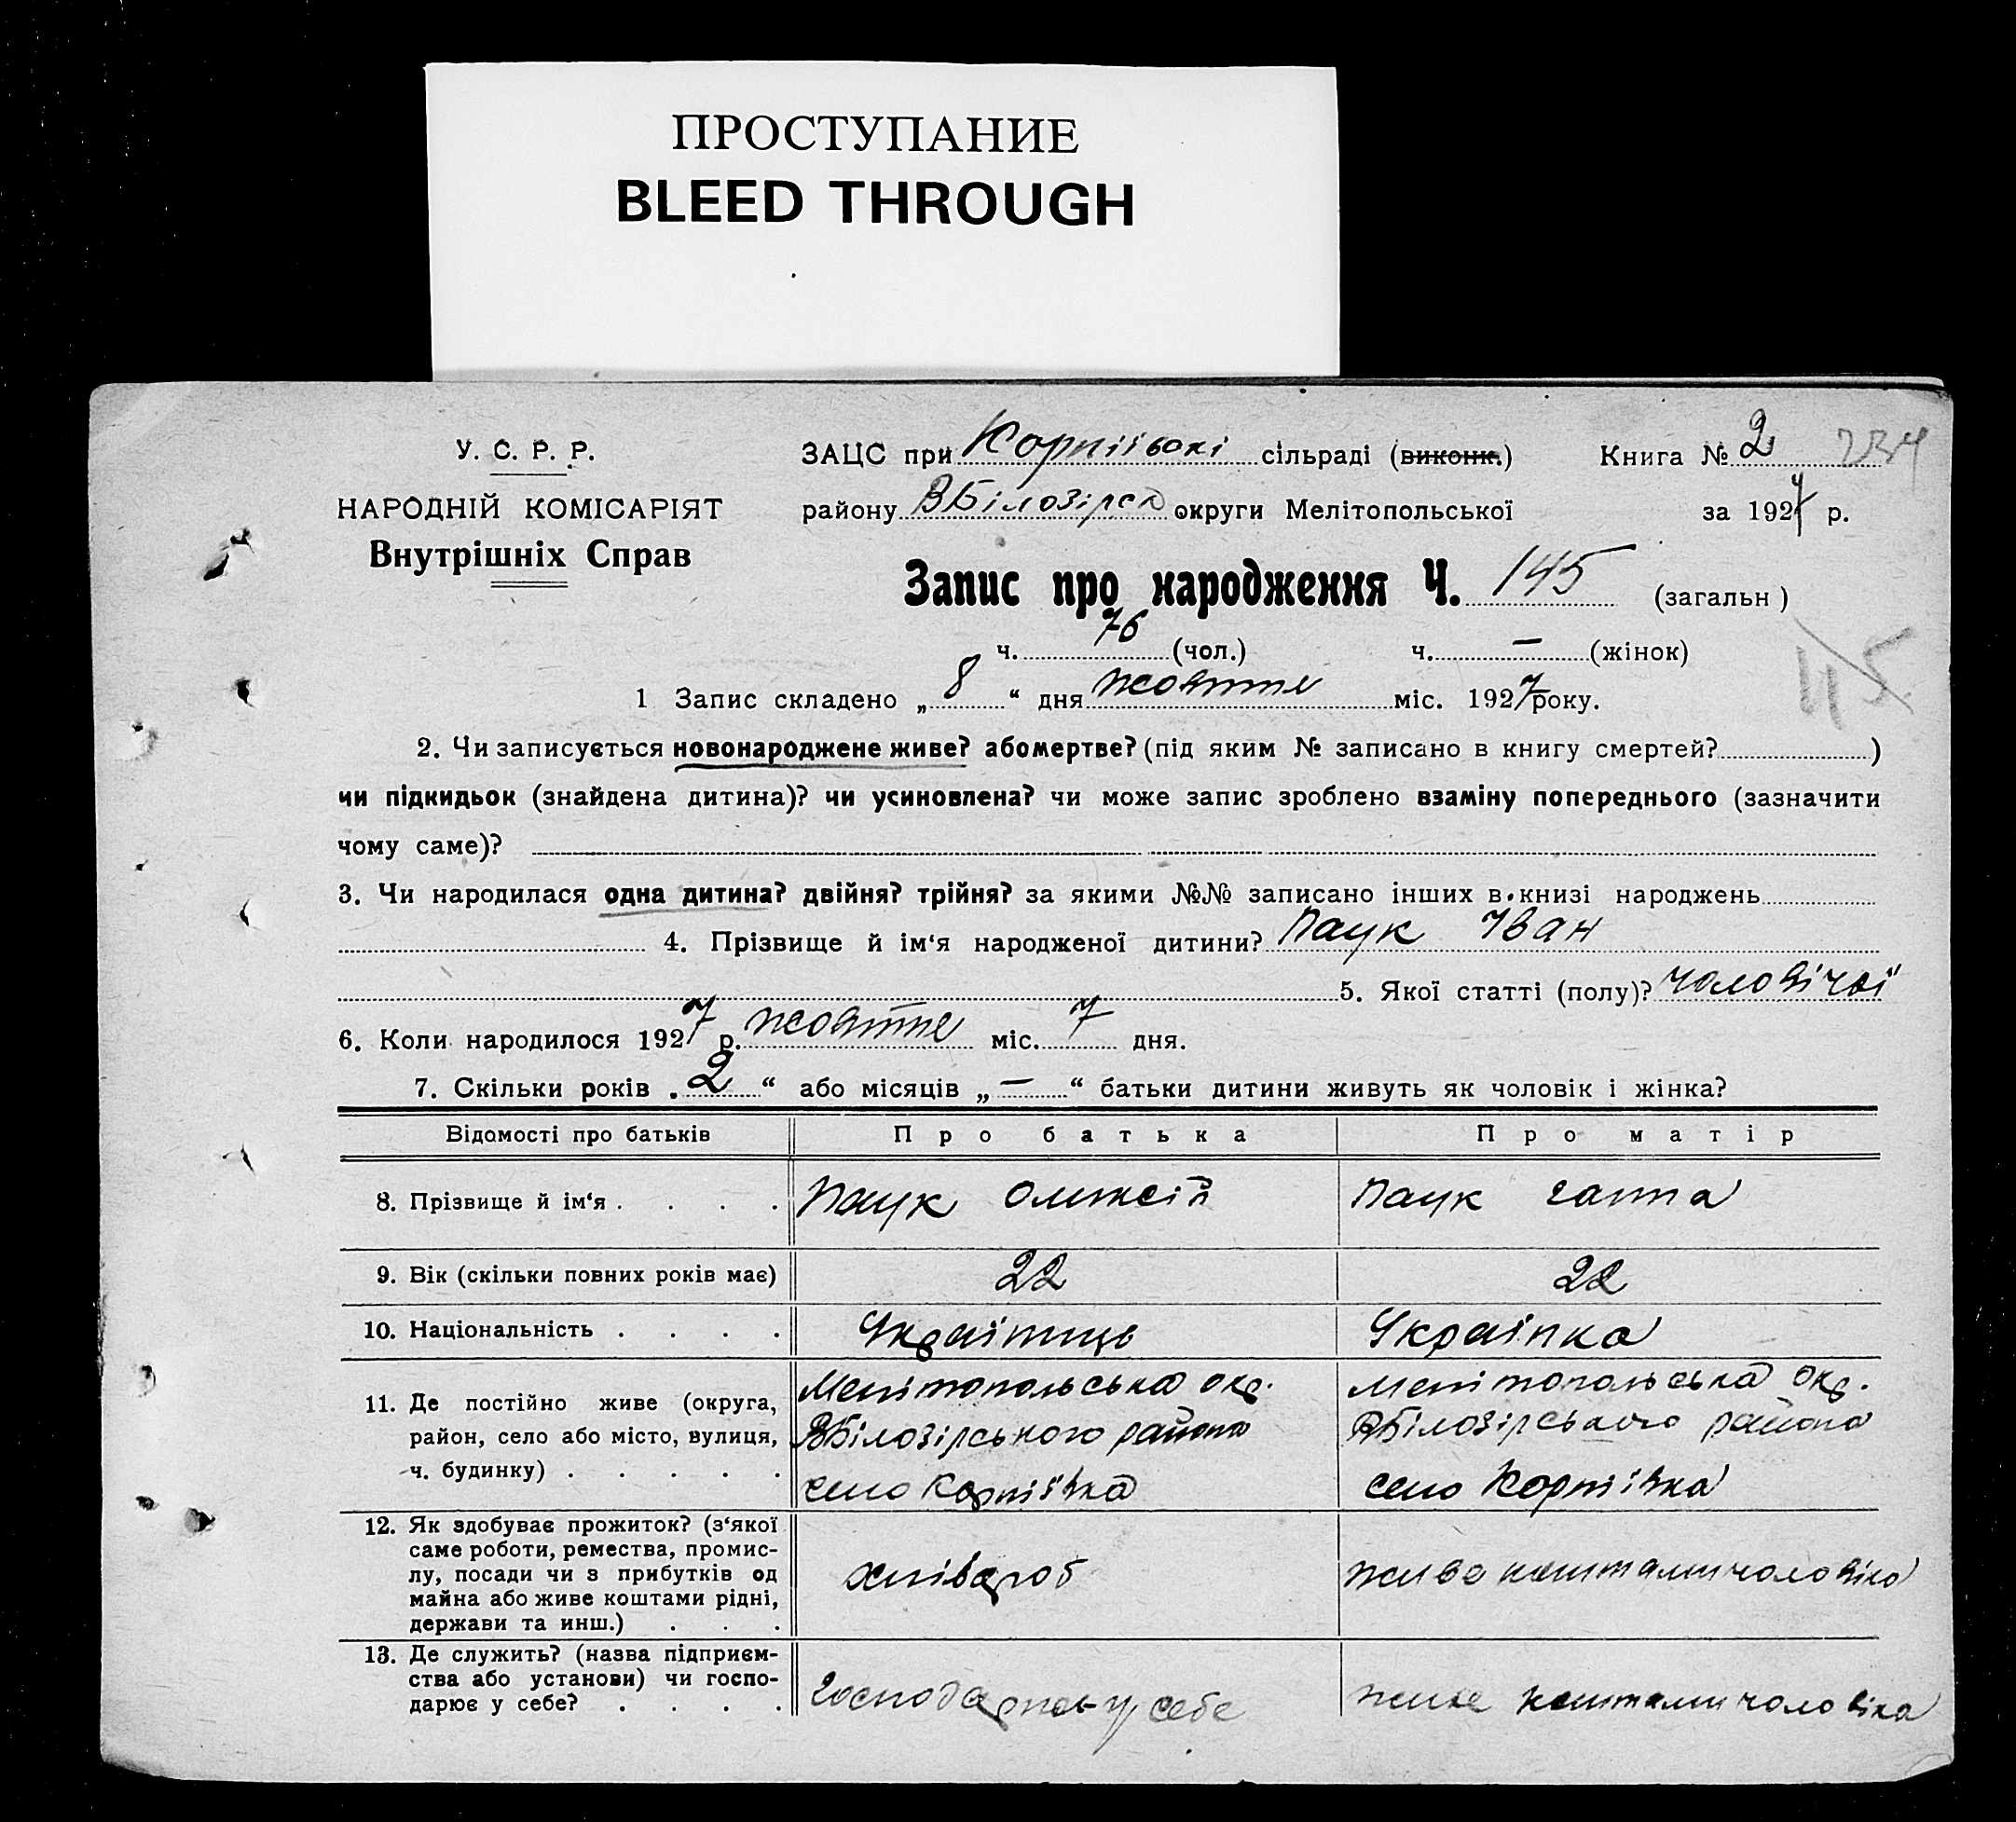 ПРОСТУПАНИЕ
BLEED THROUGH
У. С. Р. Р.
НАРОДНІЙ КОМІСАРІЯТ
Внутрішніх Справ
ЗАЦС при Корніївскі сільраді (виконк.) Книга № 2 234
району ВБілозірск округи Мелітопольської за 1927 р.
Запис про народження Ч. 145 (загальн )
ч. 76 (чол.) ч. — (жінок)
145
1 Запис складено „ 8 “ дня жовтне міс. 1927 року.
2. Чи записується новонароджене живе? або мертве? (під яким № записано в книгу смертей? )
чи підкидьок (знайдена дитина)? чи усиновлена? чи може запис зроблено взаміну попереднього (зазначити
чому саме)?
3. Чи народилася одна дитина? двійня? трійня? за якими №№ записано інших в книзі народжень
4. Прізвище й ім‘я народженої дитини? Паук Іван
5. Якої статті (полу)? чоловічої
6. Коли народилося 1927 р. жовтне міс. 7 дня.
7. Скільки років „ 2 “ або місяців „ — “ батьки дитини живуть як чоловік і жінка?
Відомості про батьків Про батька Про матір
8. Прізвище й ім‘я . . . . Паук Олексій Паук Ганна
9. Вік (скільки повних років має) 22 22
10. Національність . . . . Українць Українка
11. Де постійно живе (округа,
район, село або місто, вулиця,
ч. будинку) . . . . .
Мелітопольська окр.
ВБілозірського района
село Корніївка
Мелітопольська окр.
ВБілозірського района
село Корніївка
12. Як здобуває прожиток? (з‘якої
саме роботи, ремества, промис-
лу, посади чи з прибутків од
майна або живе коштами рідні,
держави та инш.) . . .
хлівороб
живе коштами чоловіка
13. Де служить? (назва підприєм-
ства або установи) чи госпо-
дарює у себе? . . . .
у себе
живе коштами чоловіка